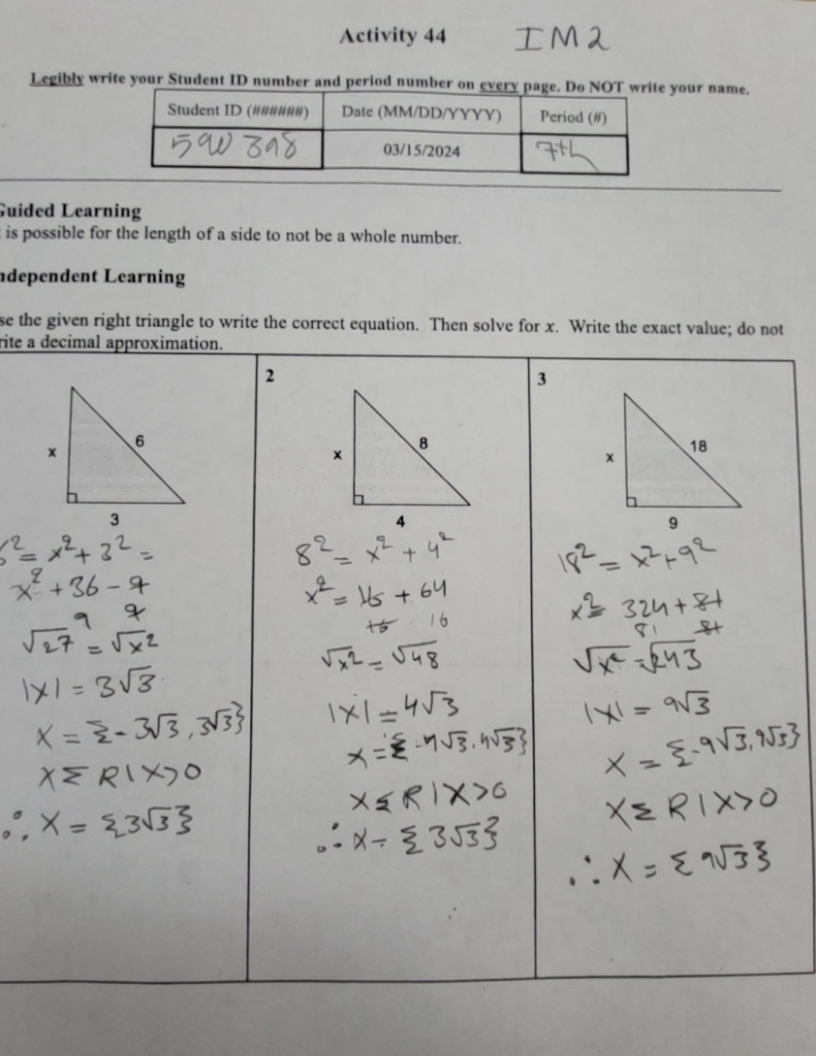 Activity 44 IM2
Legibly write your Student ID number and period number on every page. Do NOT write your name.
Student ID (######) Date (MM/DD/YYYY) Period (#)
590398 03/15/2024 7th
Guided Learning
is possible for the length of a side to not be a whole number.
Independent Learning
se the given right triangle to write the correct equation. Then solve for x. Write the exact value; do not
rite a decimal approximation.
x 6
3
6² = x² + 3² =
x² + 36 - 9
9 9
√27 = √x²
|x| = 3√3
x = {-3√3, 3√3}
x Σ R | x > 0
∴ x = {3√3}
2
x 8
4
8² = x² + 4²
x² = 16 + 64
16 16
√x² = √48
|x| = 4√3
x = {-4√3, 4√3}
x ≤ R | x > 0
∴ x = {3√3}
3
x 18
9
18² = x² + 9²
x² = 324 + 81
81 81
√x² = √243
|x| = 9√3
x = {-9√3, 9√3}
x Σ R | x > 0
∴ x = {9√3}